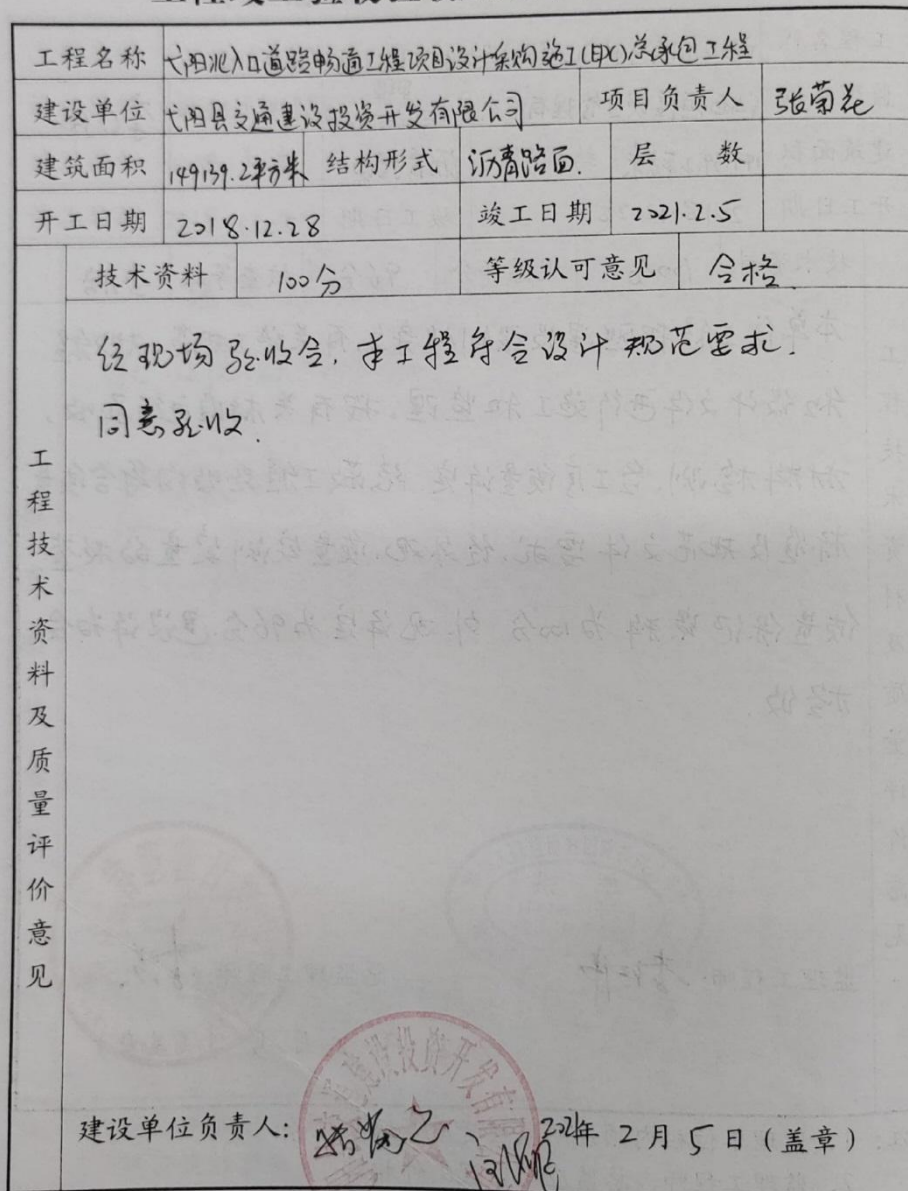 工程名称 弋阳北入口道路畅通工程项目设计采购施工(EPC)总承包工程
建设单位 弋阳县交通建设投资开发有限公司 项目负责人 张菊花
建筑面积 149139.2平方米 结构形式 沥青路面. 层数
开工日期 2018.12.28 竣工日期 2021.2.5
技术资料 100分 等级认可意见 合格.
经现场验收合,本工程符合设计规范要求.
同意验收.
工程技术资料及质量评价意见
建设投资开发有限
建设单位负责人: 2021年2月5日(盖章)